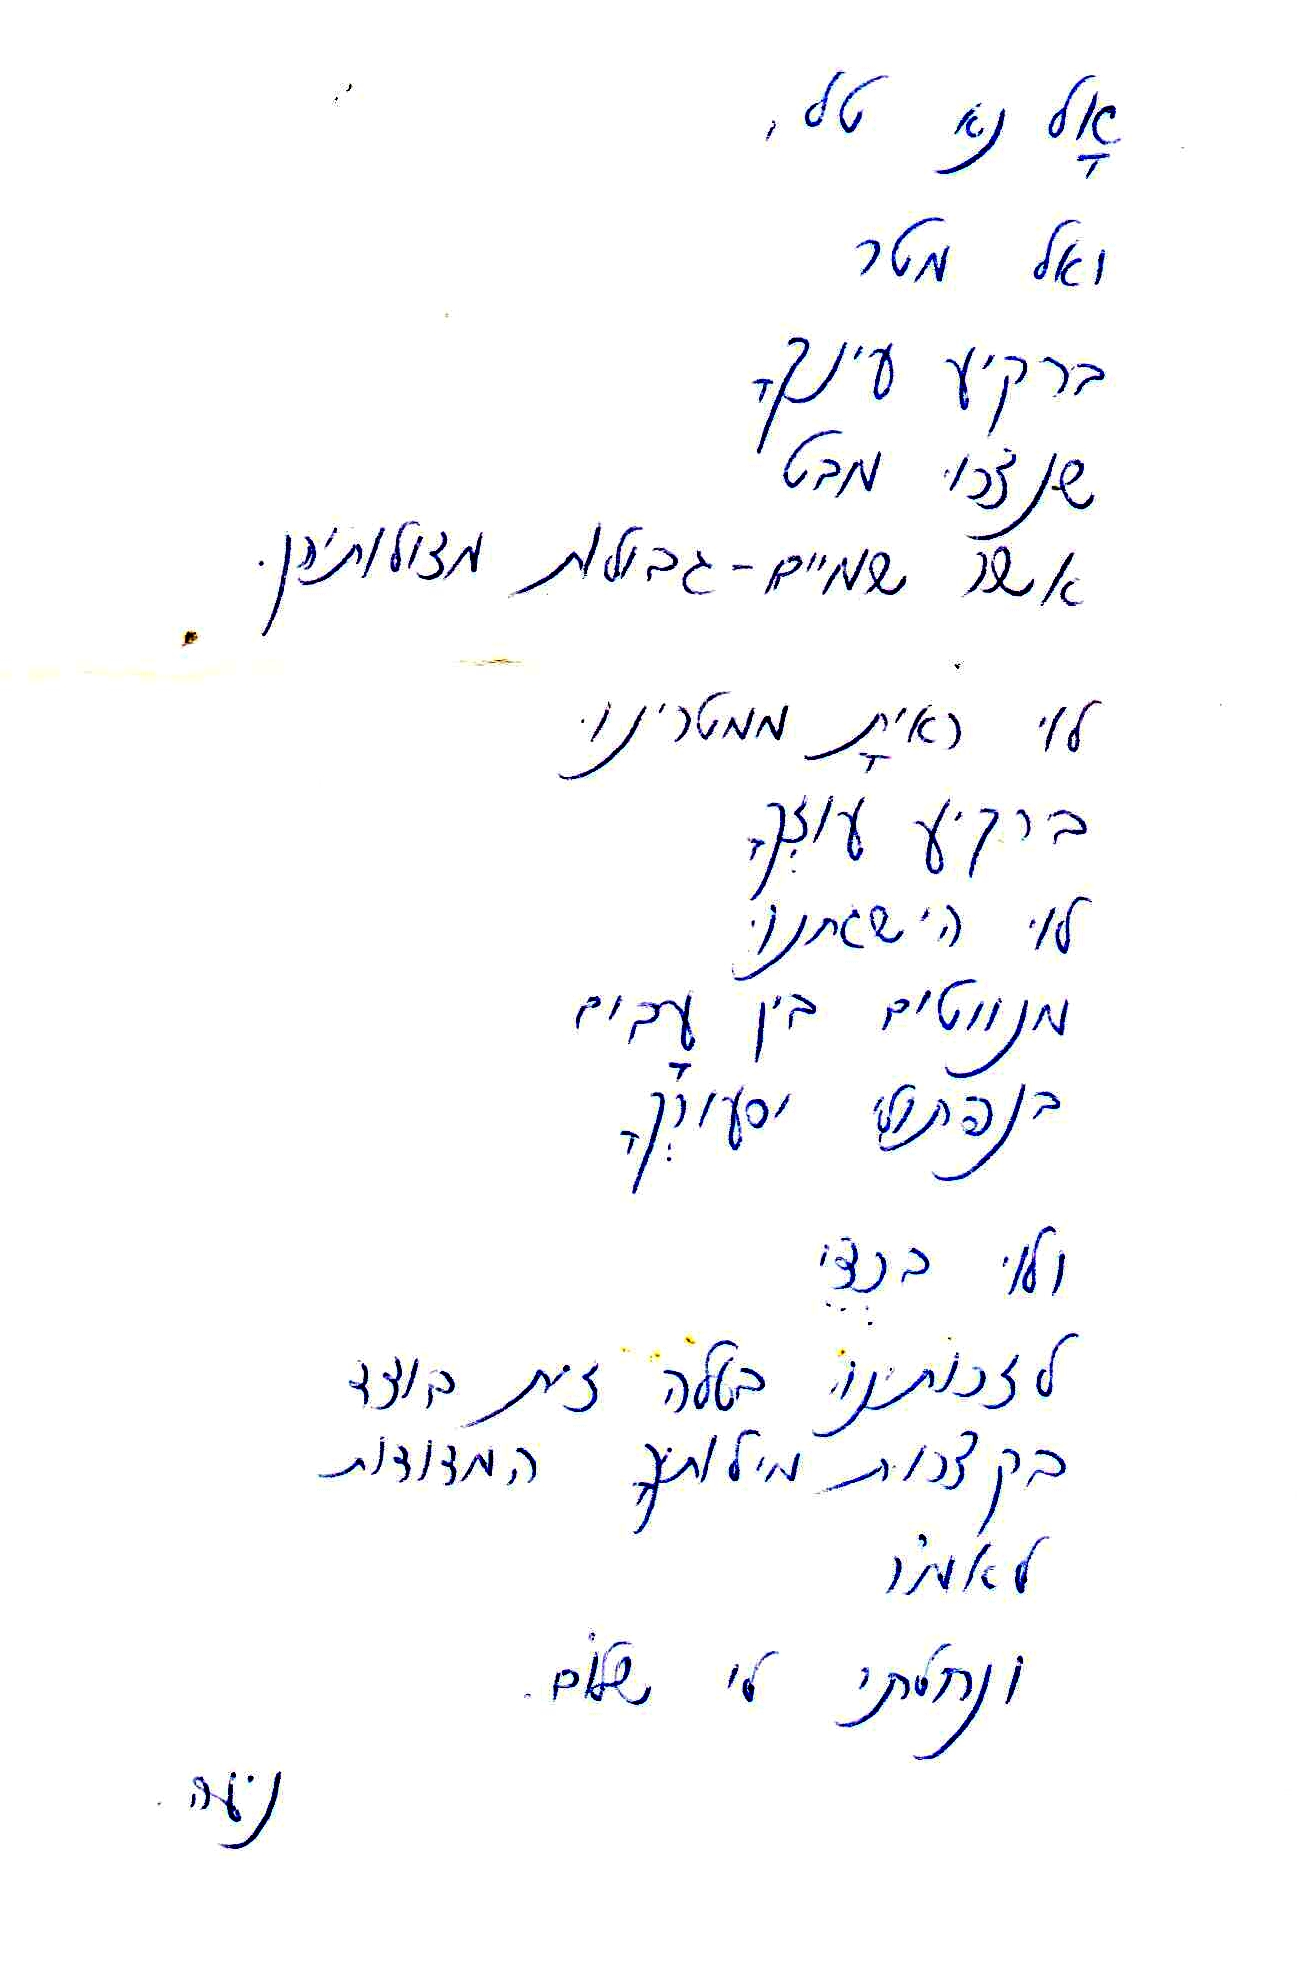 אַָל נא טל,
ואל מטר
ברקיע עינךָ
שנצרו מבט
אשר שמיים-גבולות מצולותיהן.
לוי ראיתָ ממטרינו
ברקיע עוזךָ
לוי הישגתנו
מנווטים בין עָבים
בנפתולי יסעורְךָ
ולוי
לזכותינו בטלה זית בוצד
בקצרות מילותיךָ המדודות
לאמר
ונחלתי לי שלום.